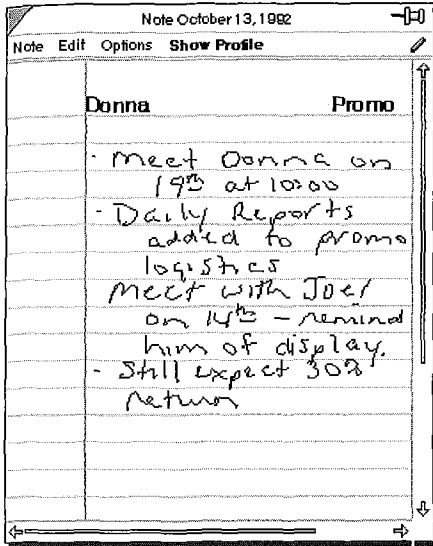 Note October 13, 1992
Note Edit Options Show Profile
Donna Promo
- Meet Donna on
19th at 10:00
- Daily Reports
added to promo
logistics
Meet with Joel
on 14th - remind
him of display.
- Still expect 30%
return